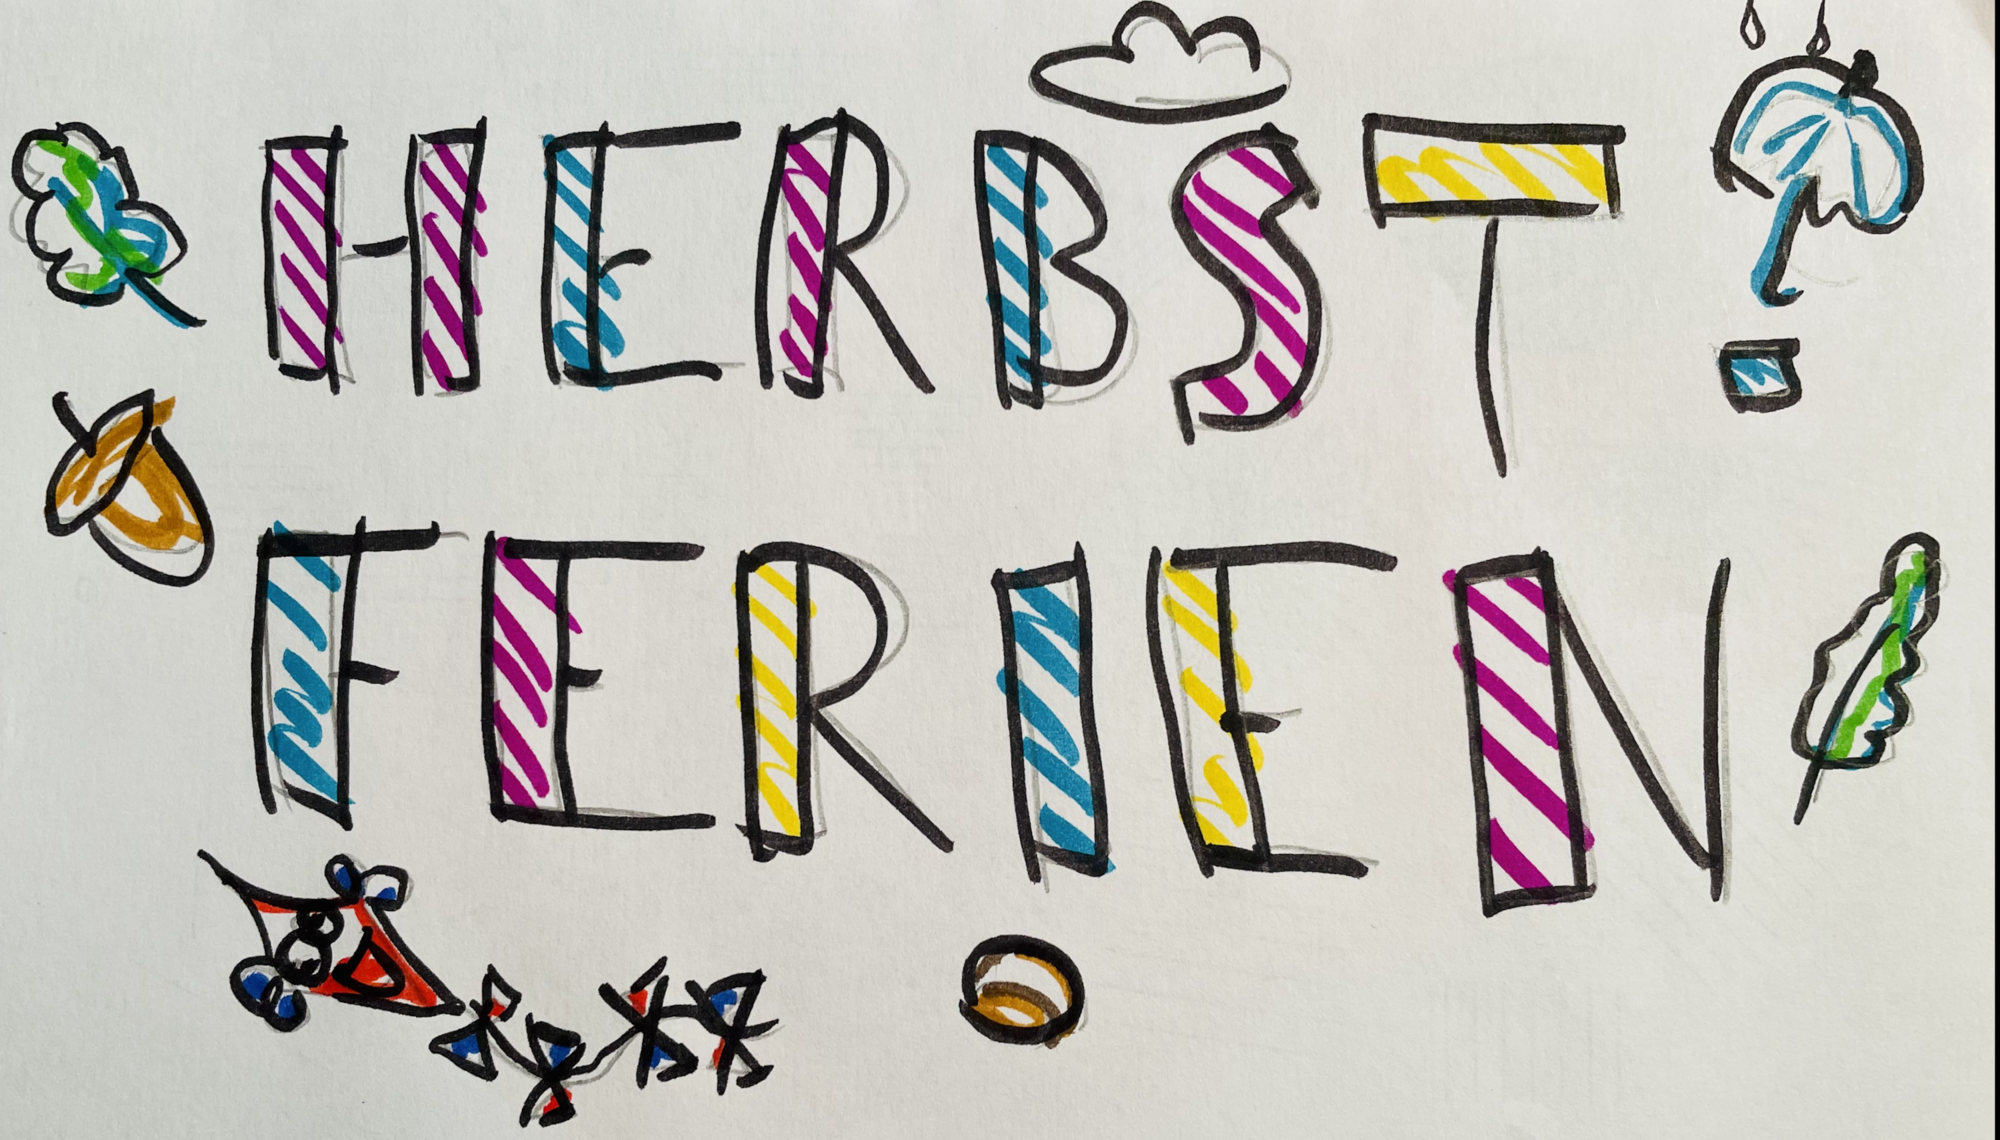 HERBST
FERIEN